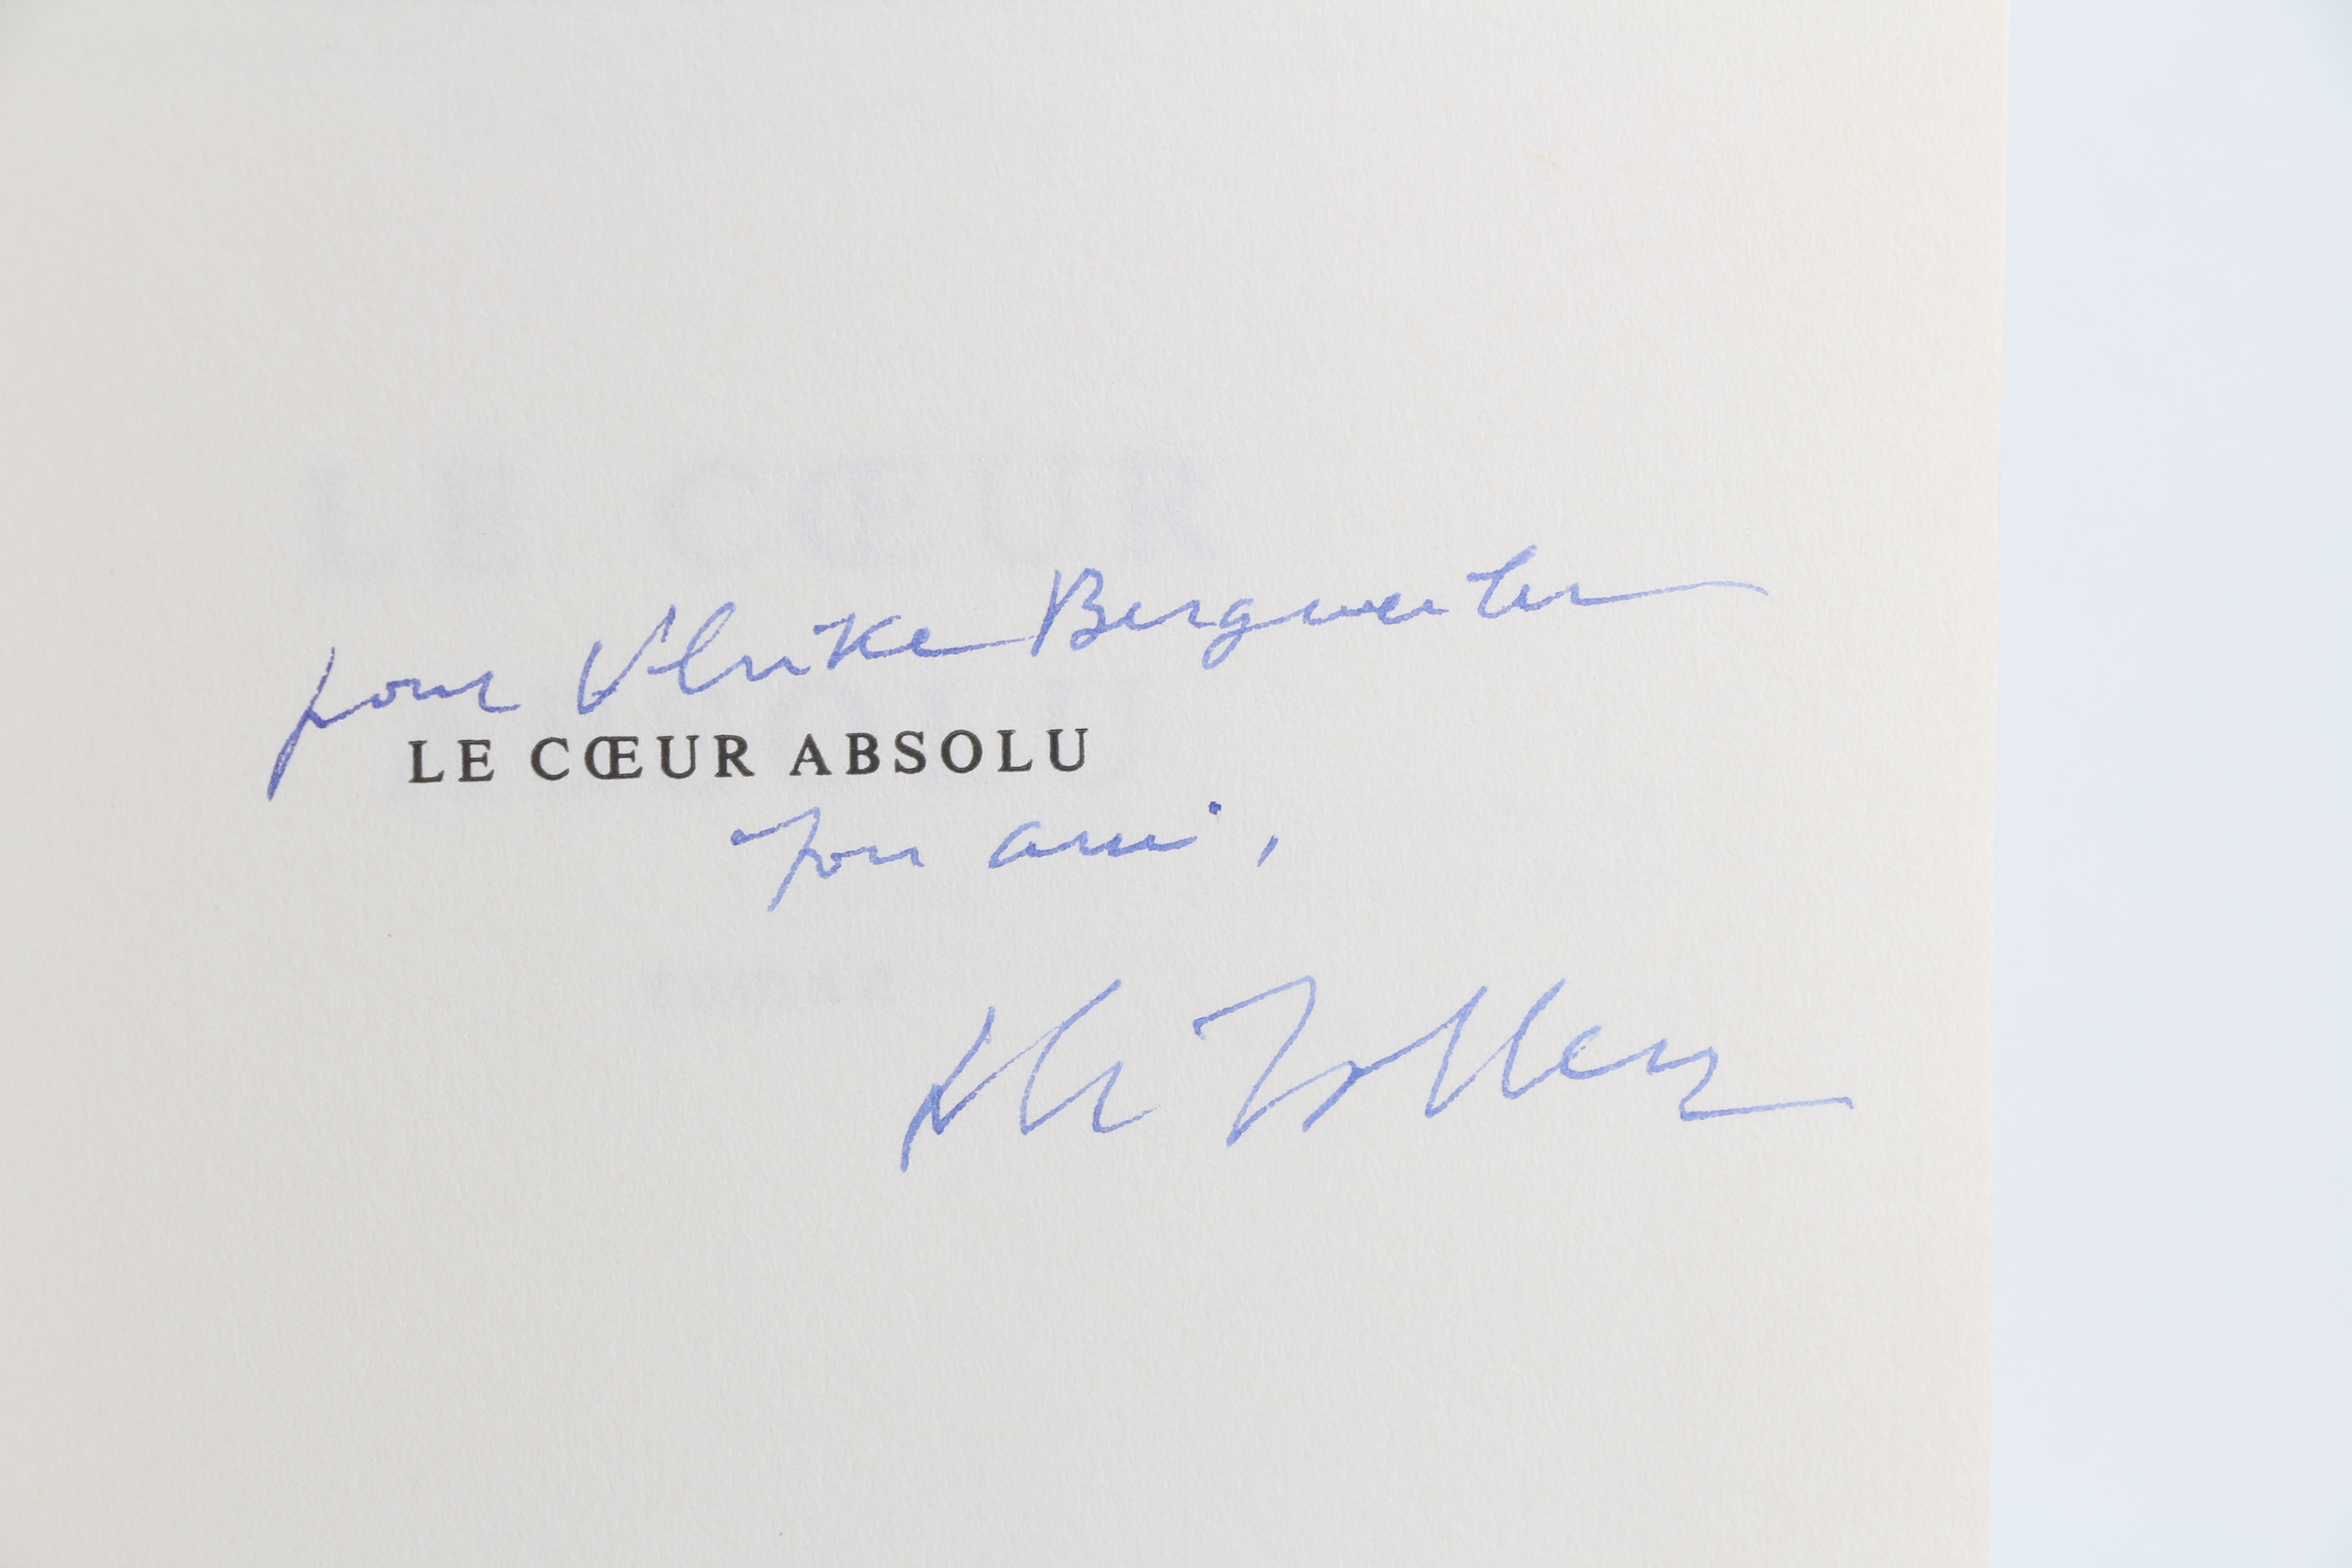 LE CŒUR
pour Ulrike Bergweiler
LE CŒUR ABSOLU
ton ami,
Ph Sollers